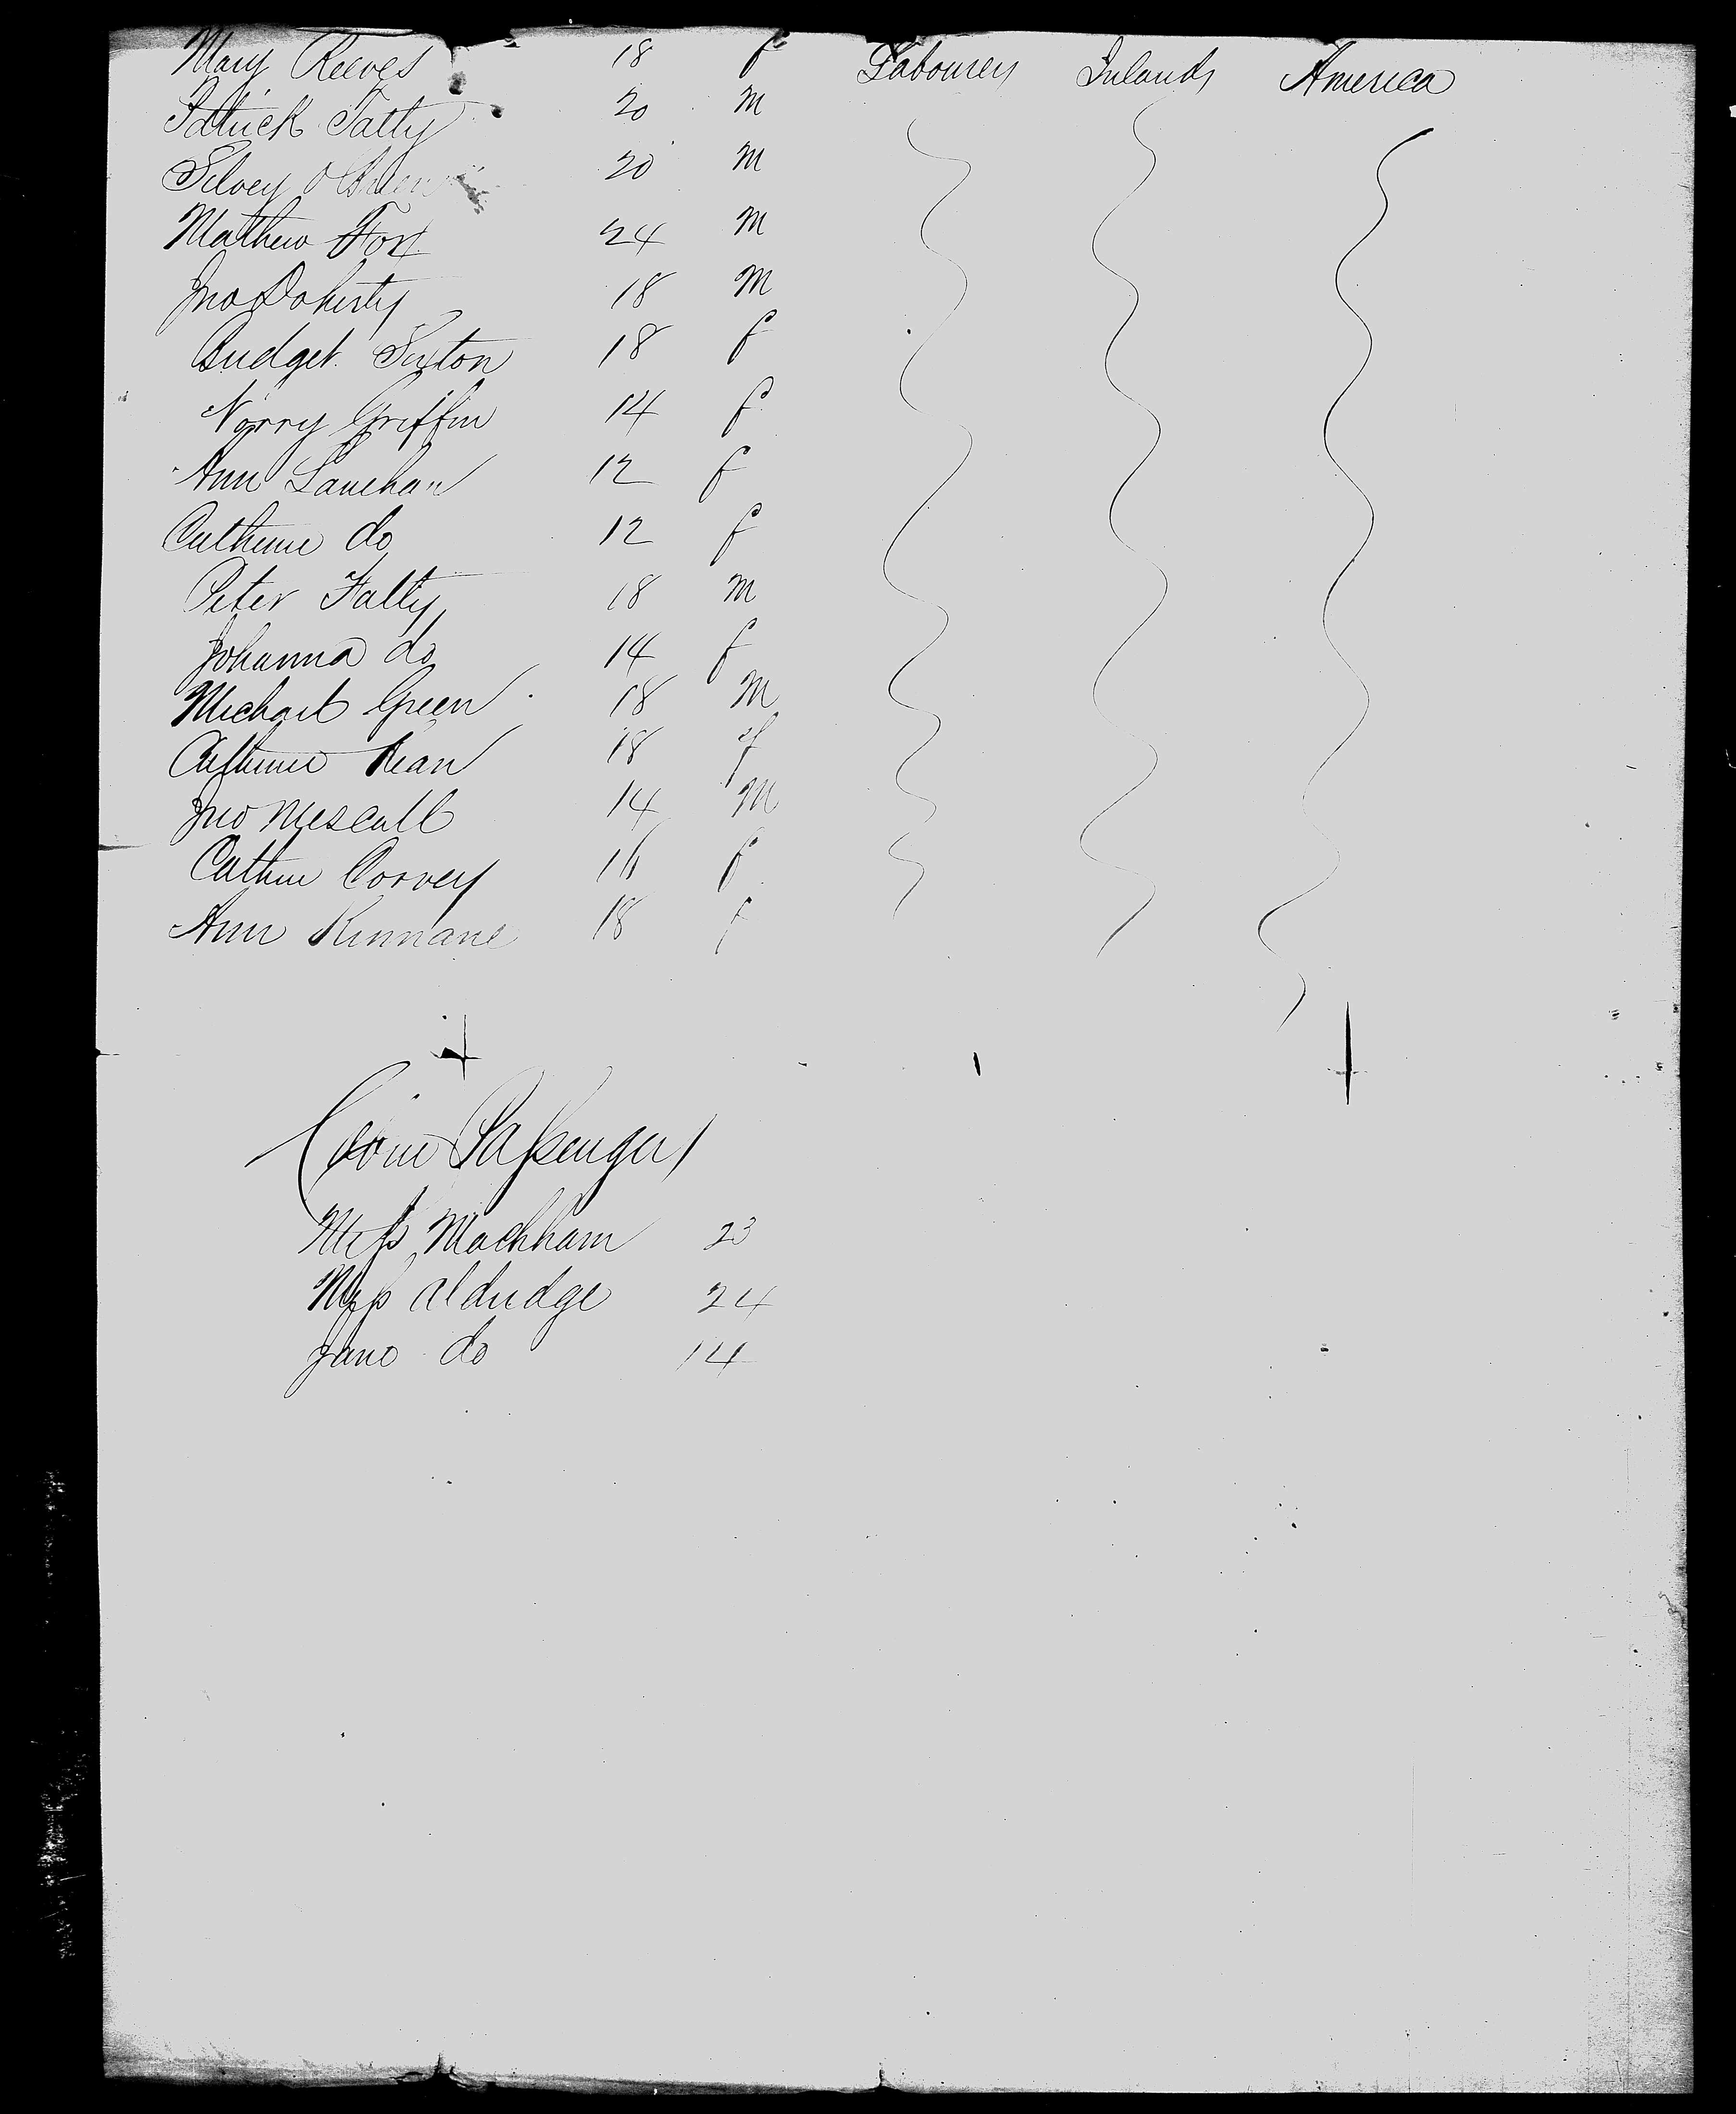 Mary Reeves 18 f Labourers Irland America
Patrick Falty 20 m
20 m
Mathew Fox 24 m
Jno Doherty 18 m
Bridget Sexton 18 f
Norry Griffin 14 f
Ann Lanehan 12 f
Catherine do 12 f
Peter Falty 18 m
Johanna do 14 f
Michael Green 18 m
Catherine Kean 18 f
Jno Mescall 14 m
Cathrn Convey 16 f
Ann Kinnane 18 f
Passengers
Miss Machham 23
Miss Aldridge 24
Jane do 14